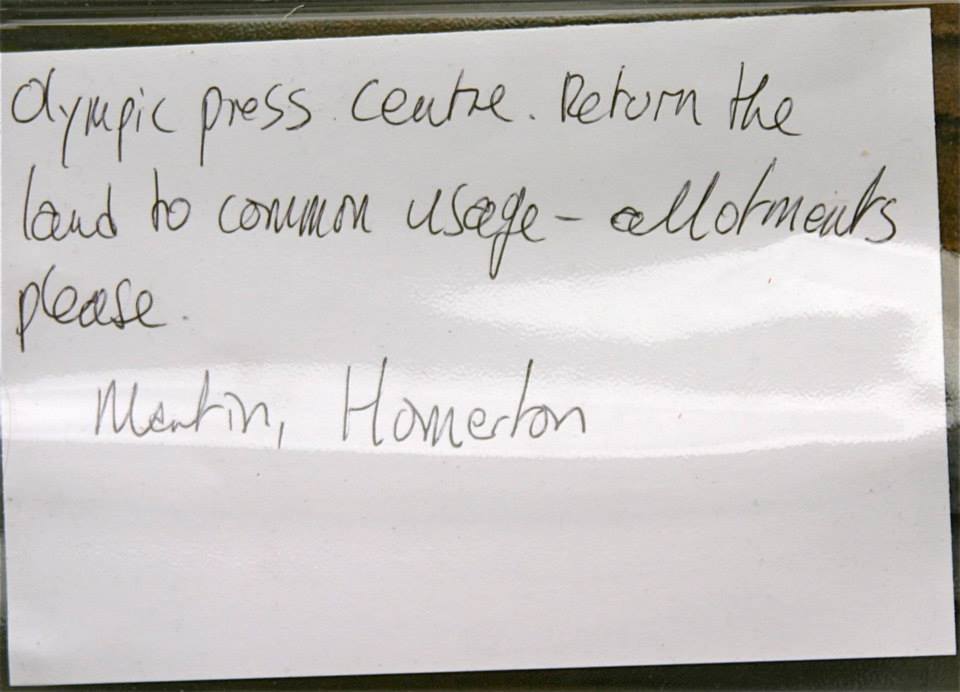 Olympic press centre. Return the
land to common usage - allotments
please.
Martin, Homerton